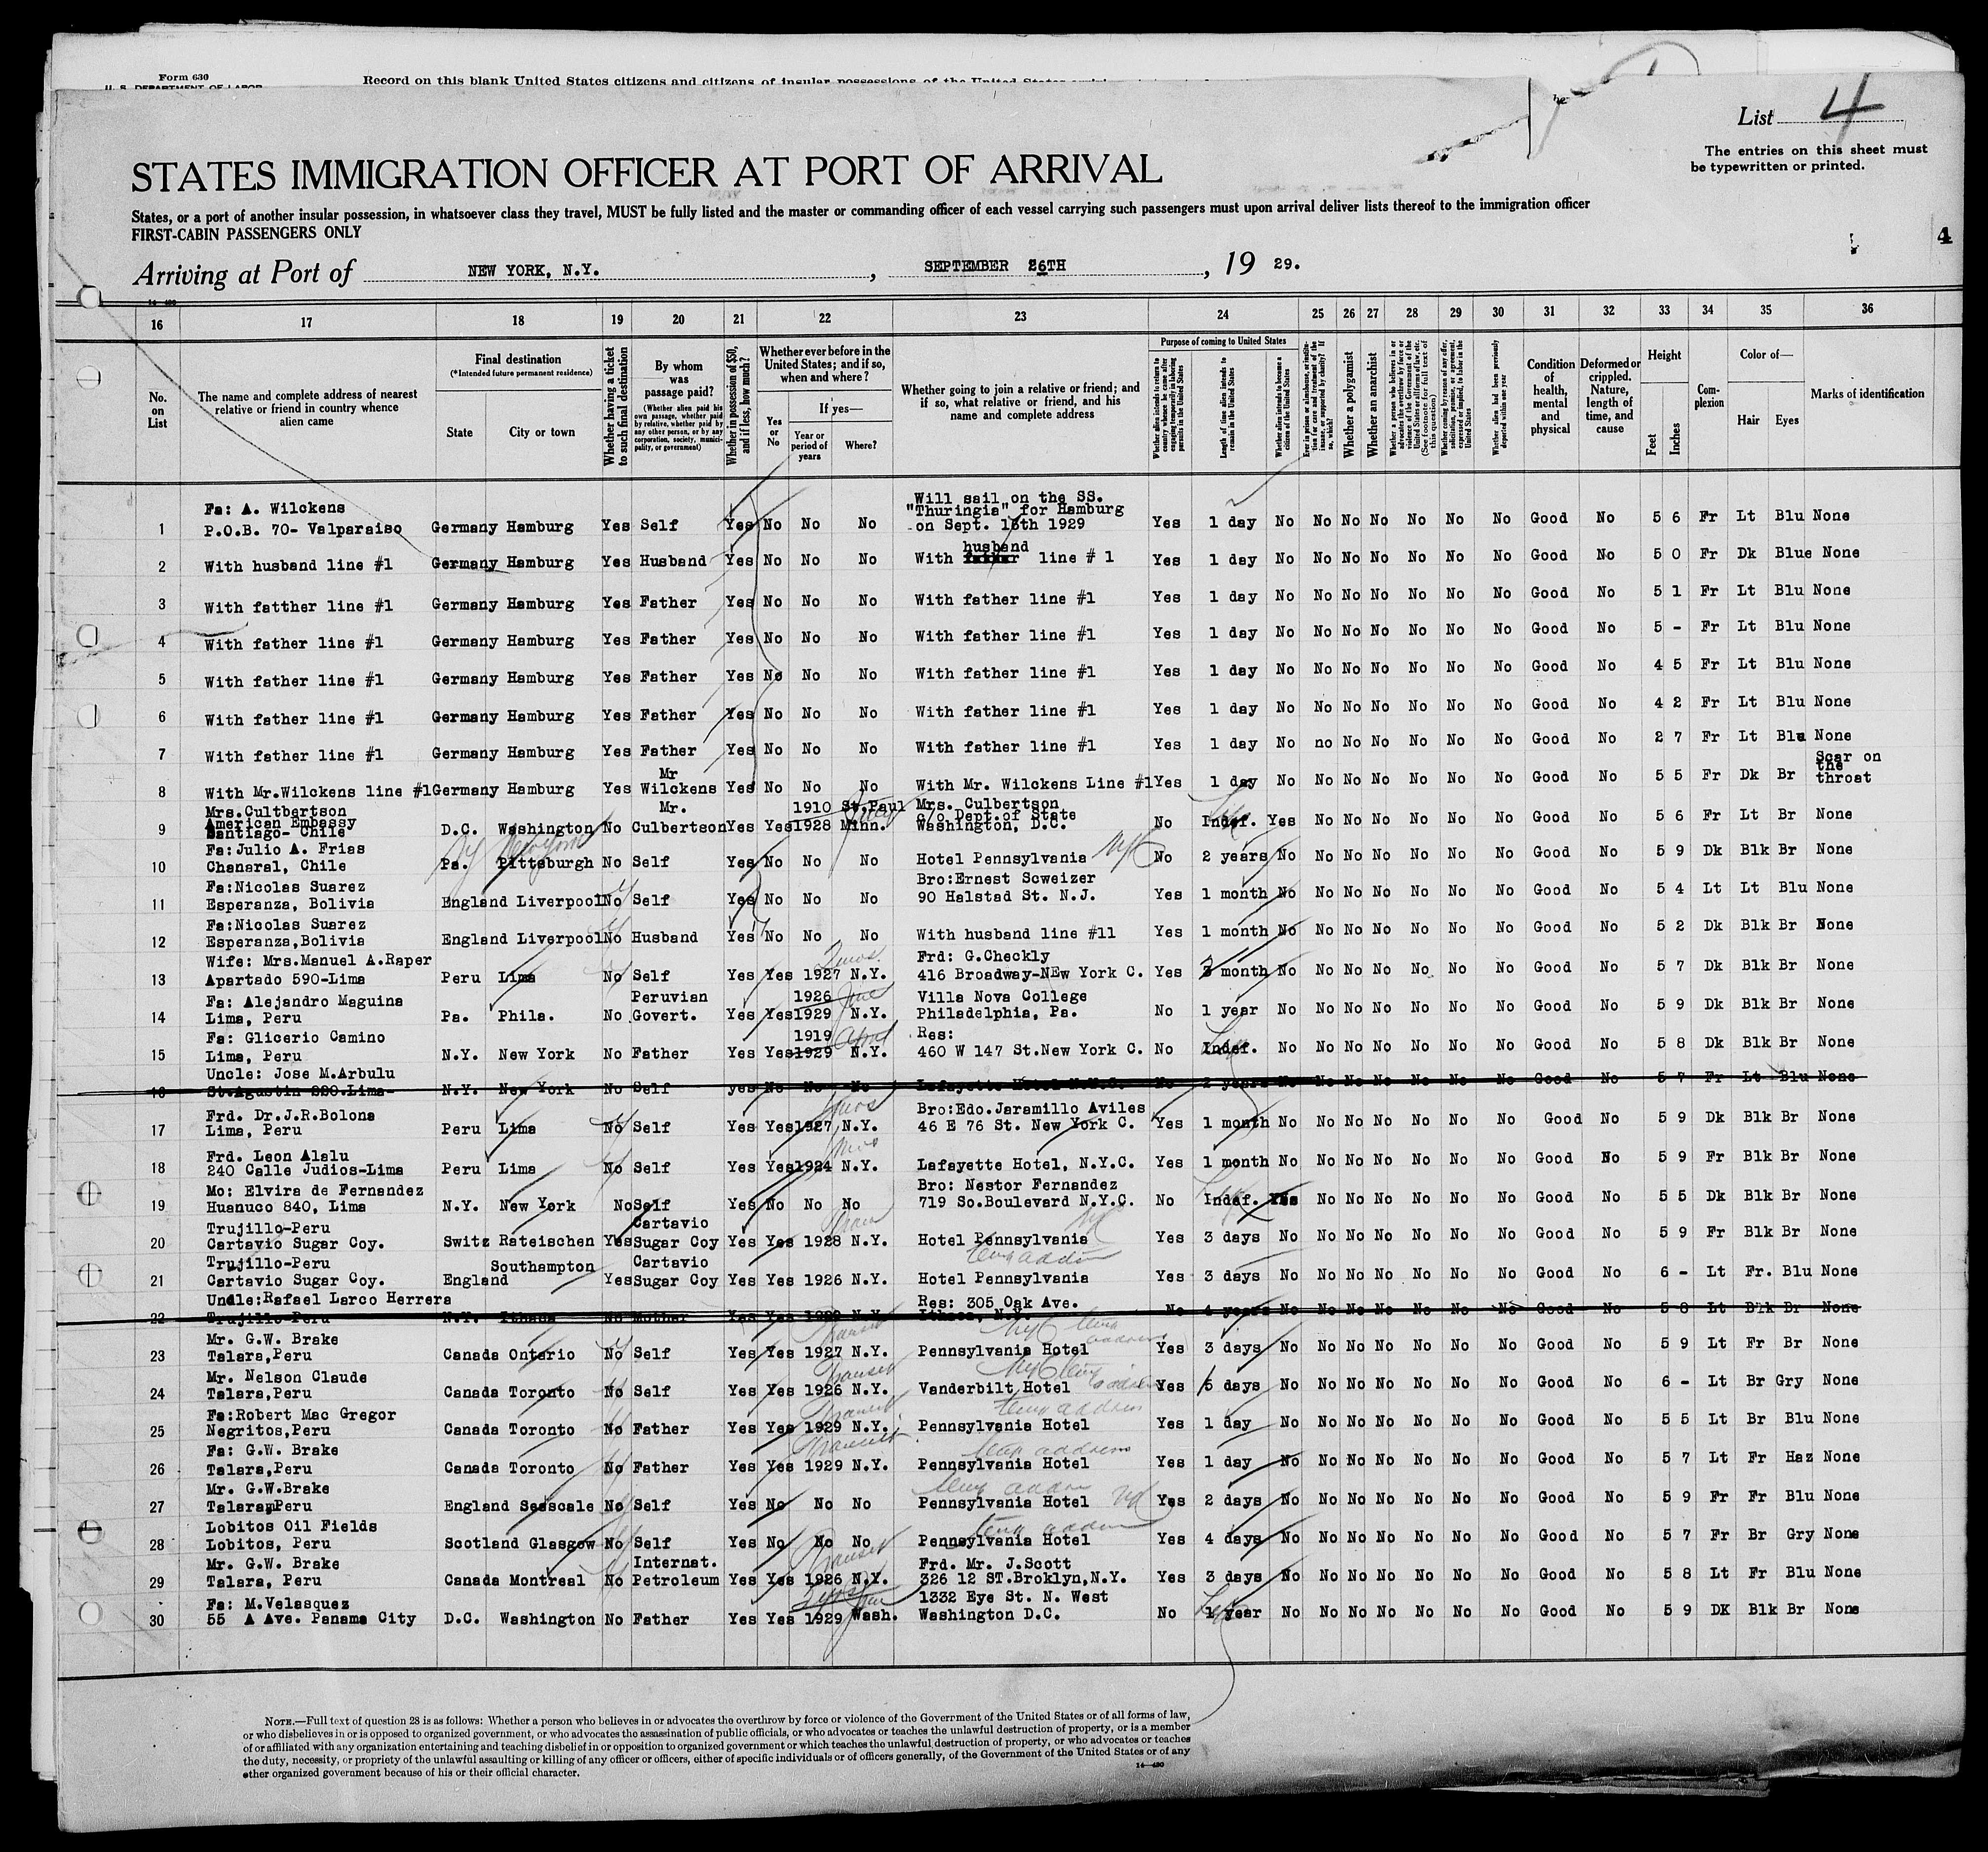 Form 630
U. S. DEPARTMENT OF LABOR
Record on this blank United States citizens and citizens of insular possessions of the United States
List 4
The entries on this sheet must
be typewritten or printed.
STATES IMMIGRATION OFFICER AT PORT OF ARRIVAL
States, or a port of another insular possession, in whatsoever class they travel, MUST be fully listed and the master or commanding officer of each vessel carrying such passengers must upon arrival deliver lists thereof to the immigration officer
FIRST-CABIN PASSENGERS ONLY
4
Arriving at Port of NEW YORK, N.Y. , SEPTEMBER 26TH , 19 29.
16 17 18 19 20 21 22 23 24 25 26 27 28 29 30 31 32 33 34 35 36
No. on List
The name and complete address of nearest relative or friend in country whence alien came
Final destination
(*Intended future permanent residence)
State
City or town
Whether having a ticket to such final destination
By whom was passage paid?
(Whether alien paid his own passage, whether paid by relative, whether paid by any other person, or by any corporation, society, municipality, or government)
Whether in possession of $50, and if less, how much?
Whether ever before in the United States; and if so, when and where?
Yes or No
If yes—
Year or period of years
Where?
Whether going to join a relative or friend; and if so, what relative or friend, and his name and complete address
Purpose of coming to United States
Whether alien intends to return to country whence he came after engaging temporarily in laboring pursuits in the United States
Length of time alien intends to remain in the United States
Whether alien intends to become a citizen of the United States
Ever in prison or almshouse, or institution for care and treatment of the insane, or supported by charity? If so, which?
Whether a polygamist
Whether an anarchist
Whether a person who believes in or advocates the overthrow by force or violence of the Government of the United States or all forms of law, etc. (See footnote for full text of this question)
Whether coming by reason of any offer, solicitation, promise, or agreement, expressed or implied, to labor in the United States
Whether alien had been previously deported within one year
Condition of health, mental and physical
Deformed or crippled. Nature, length of time, and cause
Height
Feet
Inches
Complexion
Color of—
Hair
Eyes
Marks of identification
Fa: A. Wilckens Will sail on the SS. "Thuringia" for Hamburg
1 P.O.B. 70- Valparaiso Germany Hamburg Yes Self Yes No No No on Sept. 18th 1929 Yes 1 day No No No No No No No Good No 5 6 Fr Lt Blu None
husband
2 With husband line #1 Germany Hamburg Yes Husband Yes No No No With line # 1 Yes 1 day No No No No No No No Good No 5 0 Fr Dk Blue None
3 With fatther line #1 Germany Hamburg Yes Father Yes No No No With father line #1 Yes 1 day No No No No No No No Good No 5 1 Fr Lt Blu None
4 With father line #1 Germany Hamburg Yes Father Yes No No No With father line #1 Yes 1 day No No No No No No No Good No 5 - Fr Lt Blu None
5 With father line #1 Germany Hamburg Yes Father Yes No No No With father line #1 Yes 1 day No No No No No No No Good No 4 5 Fr Lt Blu None
6 With father line #1 Germany Hamburg Yes Father Yes No No No With father line #1 Yes 1 day No No No No No No No Good No 4 2 Fr Lt Blu None
7 With father line #1 Germany Hamburg Yes Father Yes No No No With father line #1 Yes 1 day No no No No No No No Good No 2 7 Fr Lt Blu None
Mr Scar on the
8 With Mr.Wilckens line #1 Germany Hamburg Yes Wilckens Yes No No No With Mr. Wilckens Line #1 Yes 1 day No No No No No No No Good No 5 5 Fr Dk Br throat
Mrs.Cultbertson Mr. 1910 St.Paul Mrs. Culbertson
American Embassy c/o Dept.of State
9 Santiago- Chile D.C. Washington No Culbertson Yes Yes 1928 Minn. Washington, D.C. No Indef. Yes No No No No No No Good No 5 6 Fr Lt Br None
Fa:Julio A. Frias New York NYC
10 Chanaral, Chile Pa. Pittsburgh No Self Yes No No No Hotel Pennsylvania No 2 years No No No No No No No Good No 5 9 Dk Blk Br None
Fa:Nicolas Suarez Bro:Ernest Scweizer
11 Esperanza, Bolivia England Liverpool No Self Yes No No No 90 Halstad St. N.J. Yes 1 month No No No No No No No Good No 5 4 Lt Lt Blu None
Fa:Nicolas Suarez
12 Esperanza,Bolivia England Liverpool No Husband Yes No No No With husband line #11 Yes 1 month No No No No No No No Good No 5 2 Dk Blk Br None
Wife: Mrs.Manuel A.Raper 2 mos. Frd: G.Checkly
13 Apartado 590-Lima Peru Lima No Self Yes Yes 1927 N.Y. 416 Broadway-NEw York C. Yes month No No No No No No No Good No 5 7 Dk Blk Br None
Fa: Alejandro Maguina Peruvian 1926 June Villa Nova College
14 Lima, Peru Pa. Phila. No Govert. Yes Yes 1929 N.Y. Philadelphia, Pa. No 1 year No No No No No No No Good No 5 9 Dk Blk Br None
Fa: Glicerio Camino 1919 April Res:
15 Lima, Peru N.Y. New York No Father Yes Yes 1929 N.Y. 460 W 147 St.New York C. No Indef. No No No No No No No Good No 5 8 Dk Blk Br None
Uncle: Jose M.Arbulu
16 St.Agustin 280.Lima- N.Y. New York No Self yes No No No Lafayette Hotel N.Y.C. No 2 years No No No No No No No Good No 5 7 Fr Lt Blu None
Frd. Dr.J.R.Bolona Bro:Edo.Jaramillo Aviles
17 Lima, Peru Peru Lima No Self Yes Yes 1927 N.Y. 46 E 76 St. New York C. Yes 1 month No No No No No No No Good No 5 9 Dk Blk Br None
Frd. Leon Alalu
18 240 Calle Judios-Lima Peru Lima No Self Yes Yes 1924 N.Y. Lafayette Hotel, N.Y.C. Yes 1 month No No No No No No No Good No 5 9 Fr Blk Br None
Mo: Elvira de Fernandez Bro: Nestor Fernandez
19 Huanuco 840, Lima N.Y. New York No Self Yes No No No 719 So.Boulevard N.Y.C. No Indef. Yes No No No No No No Good No 5 5 Dk Blk Br None
Trujillo-Peru Cartavio
20 Cartavio Sugar Coy. Switz Rateischen Yes Sugar Coy Yes Yes 1928 N.Y. Hotel Pennsylvania Yes 3 days No No No No No No No Good No 5 9 Fr Blk Br None
Trujillo-Peru Southampton Cartavio temp address
21 Cartavio Sugar Coy. England Yes Sugar Coy Yes Yes 1926 N.Y. Hotel Pennsylvania Yes 3 days No No No No No No No Good No 6 - Lt Fr. Blu None
Undle:Rafael Larco Herrera Res: 305 Oak Ave.
22 Trujillo-Peru N.Y. Ithaca No Mother Yes Yes 1929 N.Y. Ithaca, N.Y. No 4 years No No No No No No No Good No 5 8 Lt Blk Br None
Mr. G.W. Brake Transit NYC temp address
23 Talara,Peru Canada Ontario No Self Yes Yes 1927 N.Y. Pennsylvania Hotel Yes 3 days No No No No No No No Good No 5 9 Lt Fr Br None
Mr. Nelson Claude Transit NYC temp address
24 Talara,Peru Canada Toronto No Self Yes Yes 1926 N.Y. Vanderbilt Hotel Yes 5 days No No No No No No No Good No 6 - Lt Br Gry None
Fa:Robert Mac Gregor Transit temp address
25 Negritos,Peru Canada Toronto No Father Yes Yes 1929 N.Y. Pennsylvania Hotel Yes 1 day No No No No No No No Good No 5 5 Lt Br Blu None
Fa: G.W. Brake Transit temp address
26 Talara,Peru Canada Toronto No Father Yes Yes 1929 N.Y. Pennsylvania Hotel Yes 1 day No No No No No No No Good No 5 7 Lt Fr Haz None
Mr. G.W.Brake temp address
27 Talara,Peru England Seascale No Self Yes No No No Pennsylvania Hotel Yes 2 days No No No No No No No Good No 5 9 Fr Fr Blu None
Lobitos Oil Fields temp address
28 Lobitos, Peru Scotland Glasgow No Self Yes No No No Pennsylvania Hotel Yes 4 days No No No No No No No Good No 5 7 Fr Br Gry None
Mr. G.W. Brake Internat. Transit Frd. Mr. J.Scott
29 Talara, Peru Canada Montreal No Petroleum Yes Yes 1926 N.Y. 326 12 ST.Broklyn,N.Y. Yes 3 days No No No No No No No Good No 5 8 Lt Fr Blu None
Fa: M.Velasquez 1332 Eye St. N. West
30 55 A Ave. Panama City D.C. Washington No Father Yes Yes 1929 Wash. Washington D.C. No 1 year No No No No No No No Good No 5 9 DK Blk Br None
NOTE.—Full text of question 28 is as follows: Whether a person who believes in or advocates the overthrow by force or violence of the Government of the United States or of all forms of law,
or who disbelieves in or is opposed to organized government, or who advocates the assassination of public officials, or who advocates or teaches the unlawful destruction of property, or is a member
of or affiliated with any organization entertaining and teaching disbelief in or opposition to organized government or which teaches the unlawful destruction of property, or who advocates or teaches
the duty, necessity, or propriety of the unlawful assaulting or killing of any officer or officers, either of specific individuals or of officers generally, of the Government of the United States or of any
other organized government because of his or their official character.
14—430